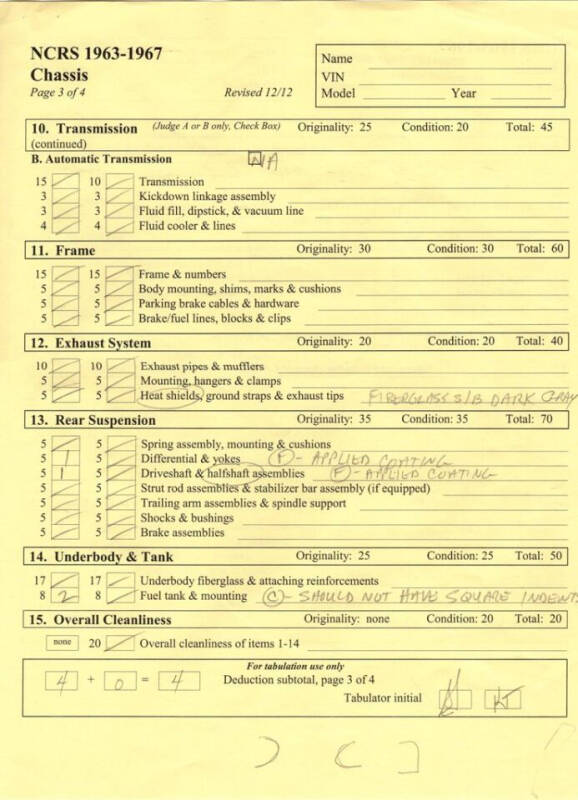 NCRS 1963-1967
Chassis
Page 3 of 4 Revised 12/12
Name
VIN
Model Year
10. Transmission (Judge A or B only, Check Box) Originality: 25 Condition: 20 Total: 45
(continued)
B. Automatic Transmission N/A
15 10 Transmission
3 3 Kickdown linkage assembly
3 3 Fluid fill, dipstick, & vacuum line
4 4 Fluid cooler & lines
11. Frame Originality: 30 Condition: 30 Total: 60
15 15 Frame & numbers
5 5 Body mounting, shims, marks & cushions
5 5 Parking brake cables & hardware
5 5 Brake/fuel lines, blocks & clips
12. Exhaust System Originality: 20 Condition: 20 Total: 40
10 10 Exhaust pipes & mufflers
5 5 Mounting, hangers & clamps
5 5 Heat shields, ground straps & exhaust tips FIBERGLASS S/B DARK GRAY
13. Rear Suspension Originality: 35 Condition: 35 Total: 70
5 5 Spring assembly, mounting & cushions
5 1 5 Differential & yokes (F) - APPLIED COATING
5 1 5 Driveshaft & halfshaft assemblies (F) - APPLIED COATING
5 5 Strut rod assemblies & stabilizer bar assembly (if equipped)
5 5 Trailing arm assemblies & spindle support
5 5 Shocks & bushings
5 5 Brake assemblies
14. Underbody & Tank Originality: 25 Condition: 25 Total: 50
17 17 Underbody fiberglass & attaching reinforcements
8 2 8 Fuel tank & mounting (C) - SHOULD NOT HAVE SQUARE INDENTS
15. Overall Cleanliness Originality: none Condition: 20 Total: 20
none 20 Overall cleanliness of items 1-14
For tabulation use only
4 + 0 = 4 Deduction subtotal, page 3 of 4
Tabulator initial